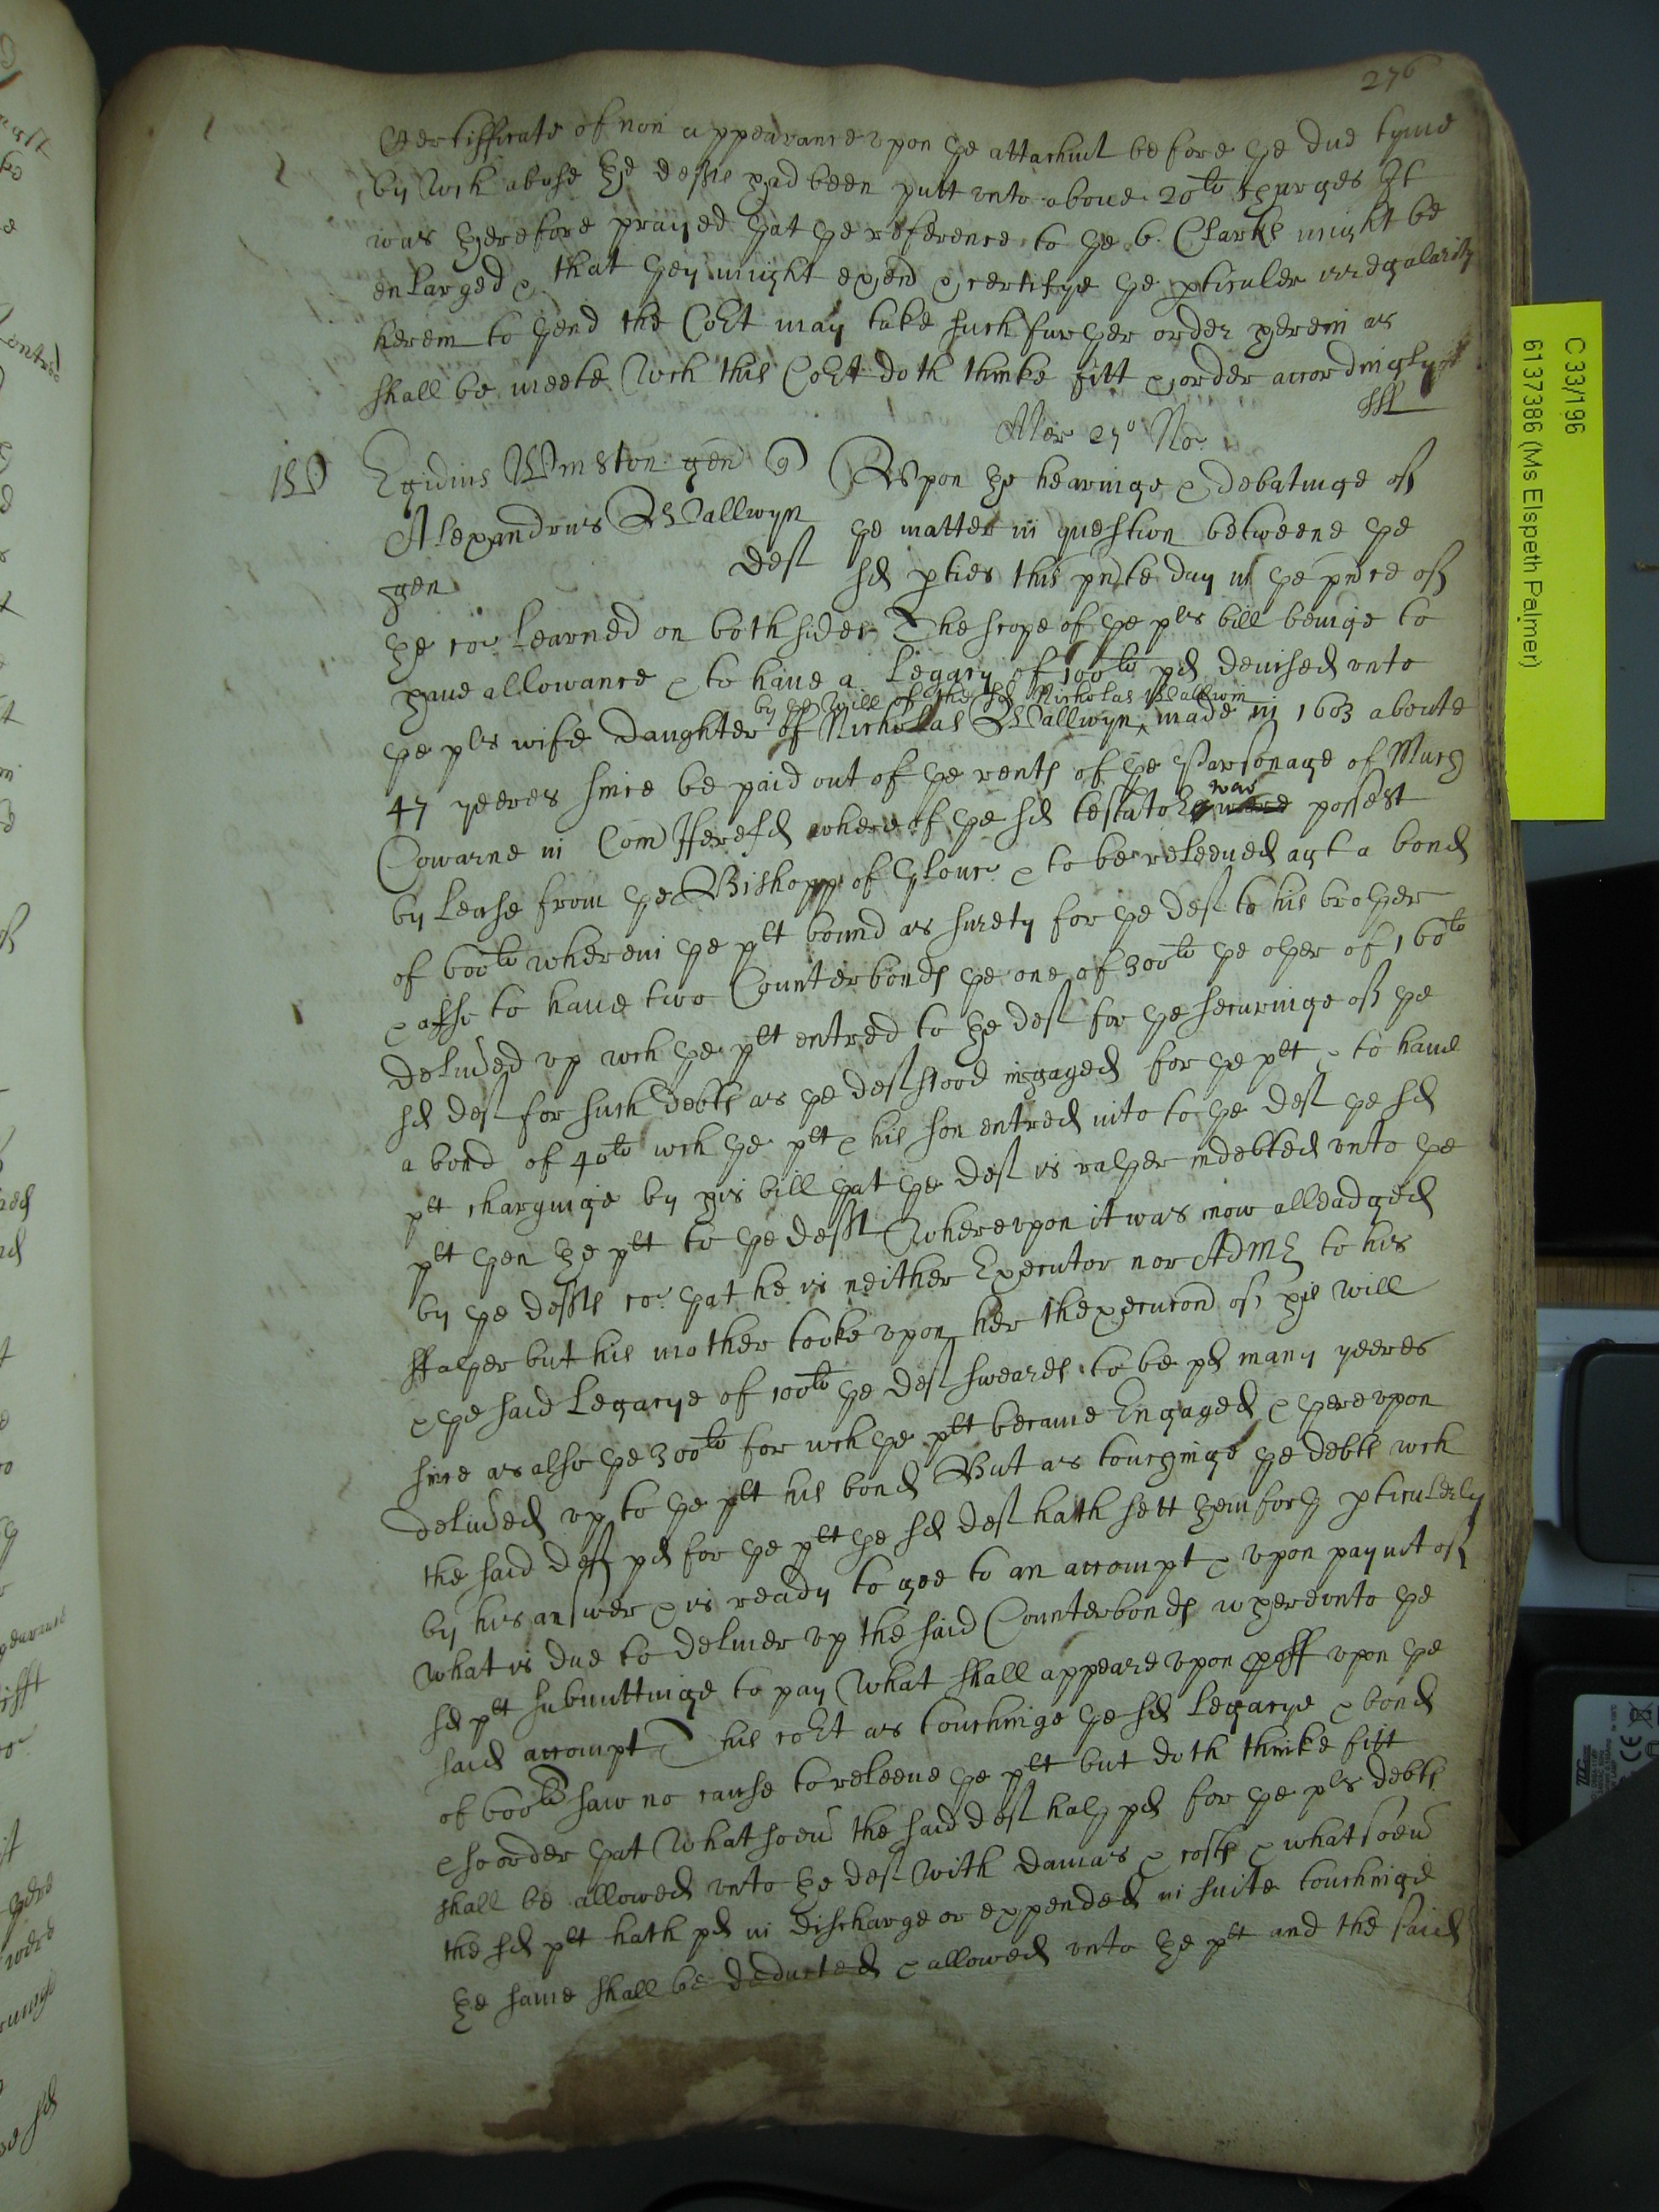 276
Certifficate of non appearance vpon ye attachmt before ye due tyme
by wch abuse the defts had been putt vnto aboue 20li charges It
was therefore prayed yat ye reference to ye 6. Clarks might be
enlarged & that yey might exend & certifye ye pticuler irregalarity
herein to yend the Cort may take such furyer order herein as
shall be meete Wch this Cort doth thinke fitt & order accordingly
Mer 27o No:
Egidius Winston gen q
Alexandrus Wallwyn
gen deft
Vpon the hearinge & debatinge of
ye matter in question betweene ye
sd pties this pnte day in ye pnce of
the co: Learned on both sides The scope of ye pls bill beinge to
haue allowance & to haue a Legacy of 100li pd deuised vnto
by ye Will of the sd Nicholas Wallwin
ye pls wife daughter of Nicholas Wallwyn, made in 1603 aboute
47 yeeres since be paid out of ye rents of ye Parsonage of Much
was
Cowarne in Com Herefd whereof ye sd testator were possest
by Lease from ye Bishopp of Glouc & to be releeued agt a bond
of 600li wherein ye plt bound as surety for ye deft to his broyer
& also to haue two Counterbonds ye one of 300li ye oyer of 160li
deliued vp wch ye plt entred to the deft for ye securinge of ye
sd deft for such debts as ye deft stood ingaged for ye plt & to haue
a bond of 40li wch ye plt & his son entred into to ye deft ye sd
plt charginge by his bill yat ye deft is rayer indebted vnto ye
plt yen the plt to ye deft Wherevpon it was now alleadged
by ye defts co: yat he is neither Executor nor Admr to his
ffayer but his mother tooke vpon her thexecucon of his will
& ye said Legacye of 100li ye deft sweares to be pd many yeeres
since as also ye 300li for wch ye plt became Engaged & yerevpon
deliued vp to ye plt his bond But as touchinge ye debts wch
the said deft pd for ye plt ye sd deft hath sett them forth pticulerly
by his answer & is ready to goe to an accompt & vpon paymt of
what is due to deliuer vp the said Counterbonds wherevnto ye
sd plt submittinge to pay What shall appeare vpon poff vpon ye
said accompt This Cort as touchinge ye sd Legacye & bond
of 600li saw no cause to releeue ye plt but doth thinke fitt
& so order yat Whatsoeu the said deft hath pd for ye pls debts
shall be allowed vnto the deft with damas & costs & whatsoeu
the sd plt hath pd in discharge or expended in suite touchinge
the same shall be deducted & allowed vnto the plt and the said
C 33/196
6137386 (Ms Elspeth Palmer)